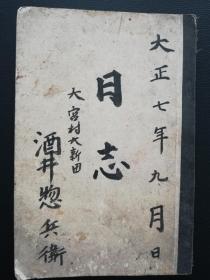 大正七年九月日
日志
大宮村大新田
酒井惣兵衛